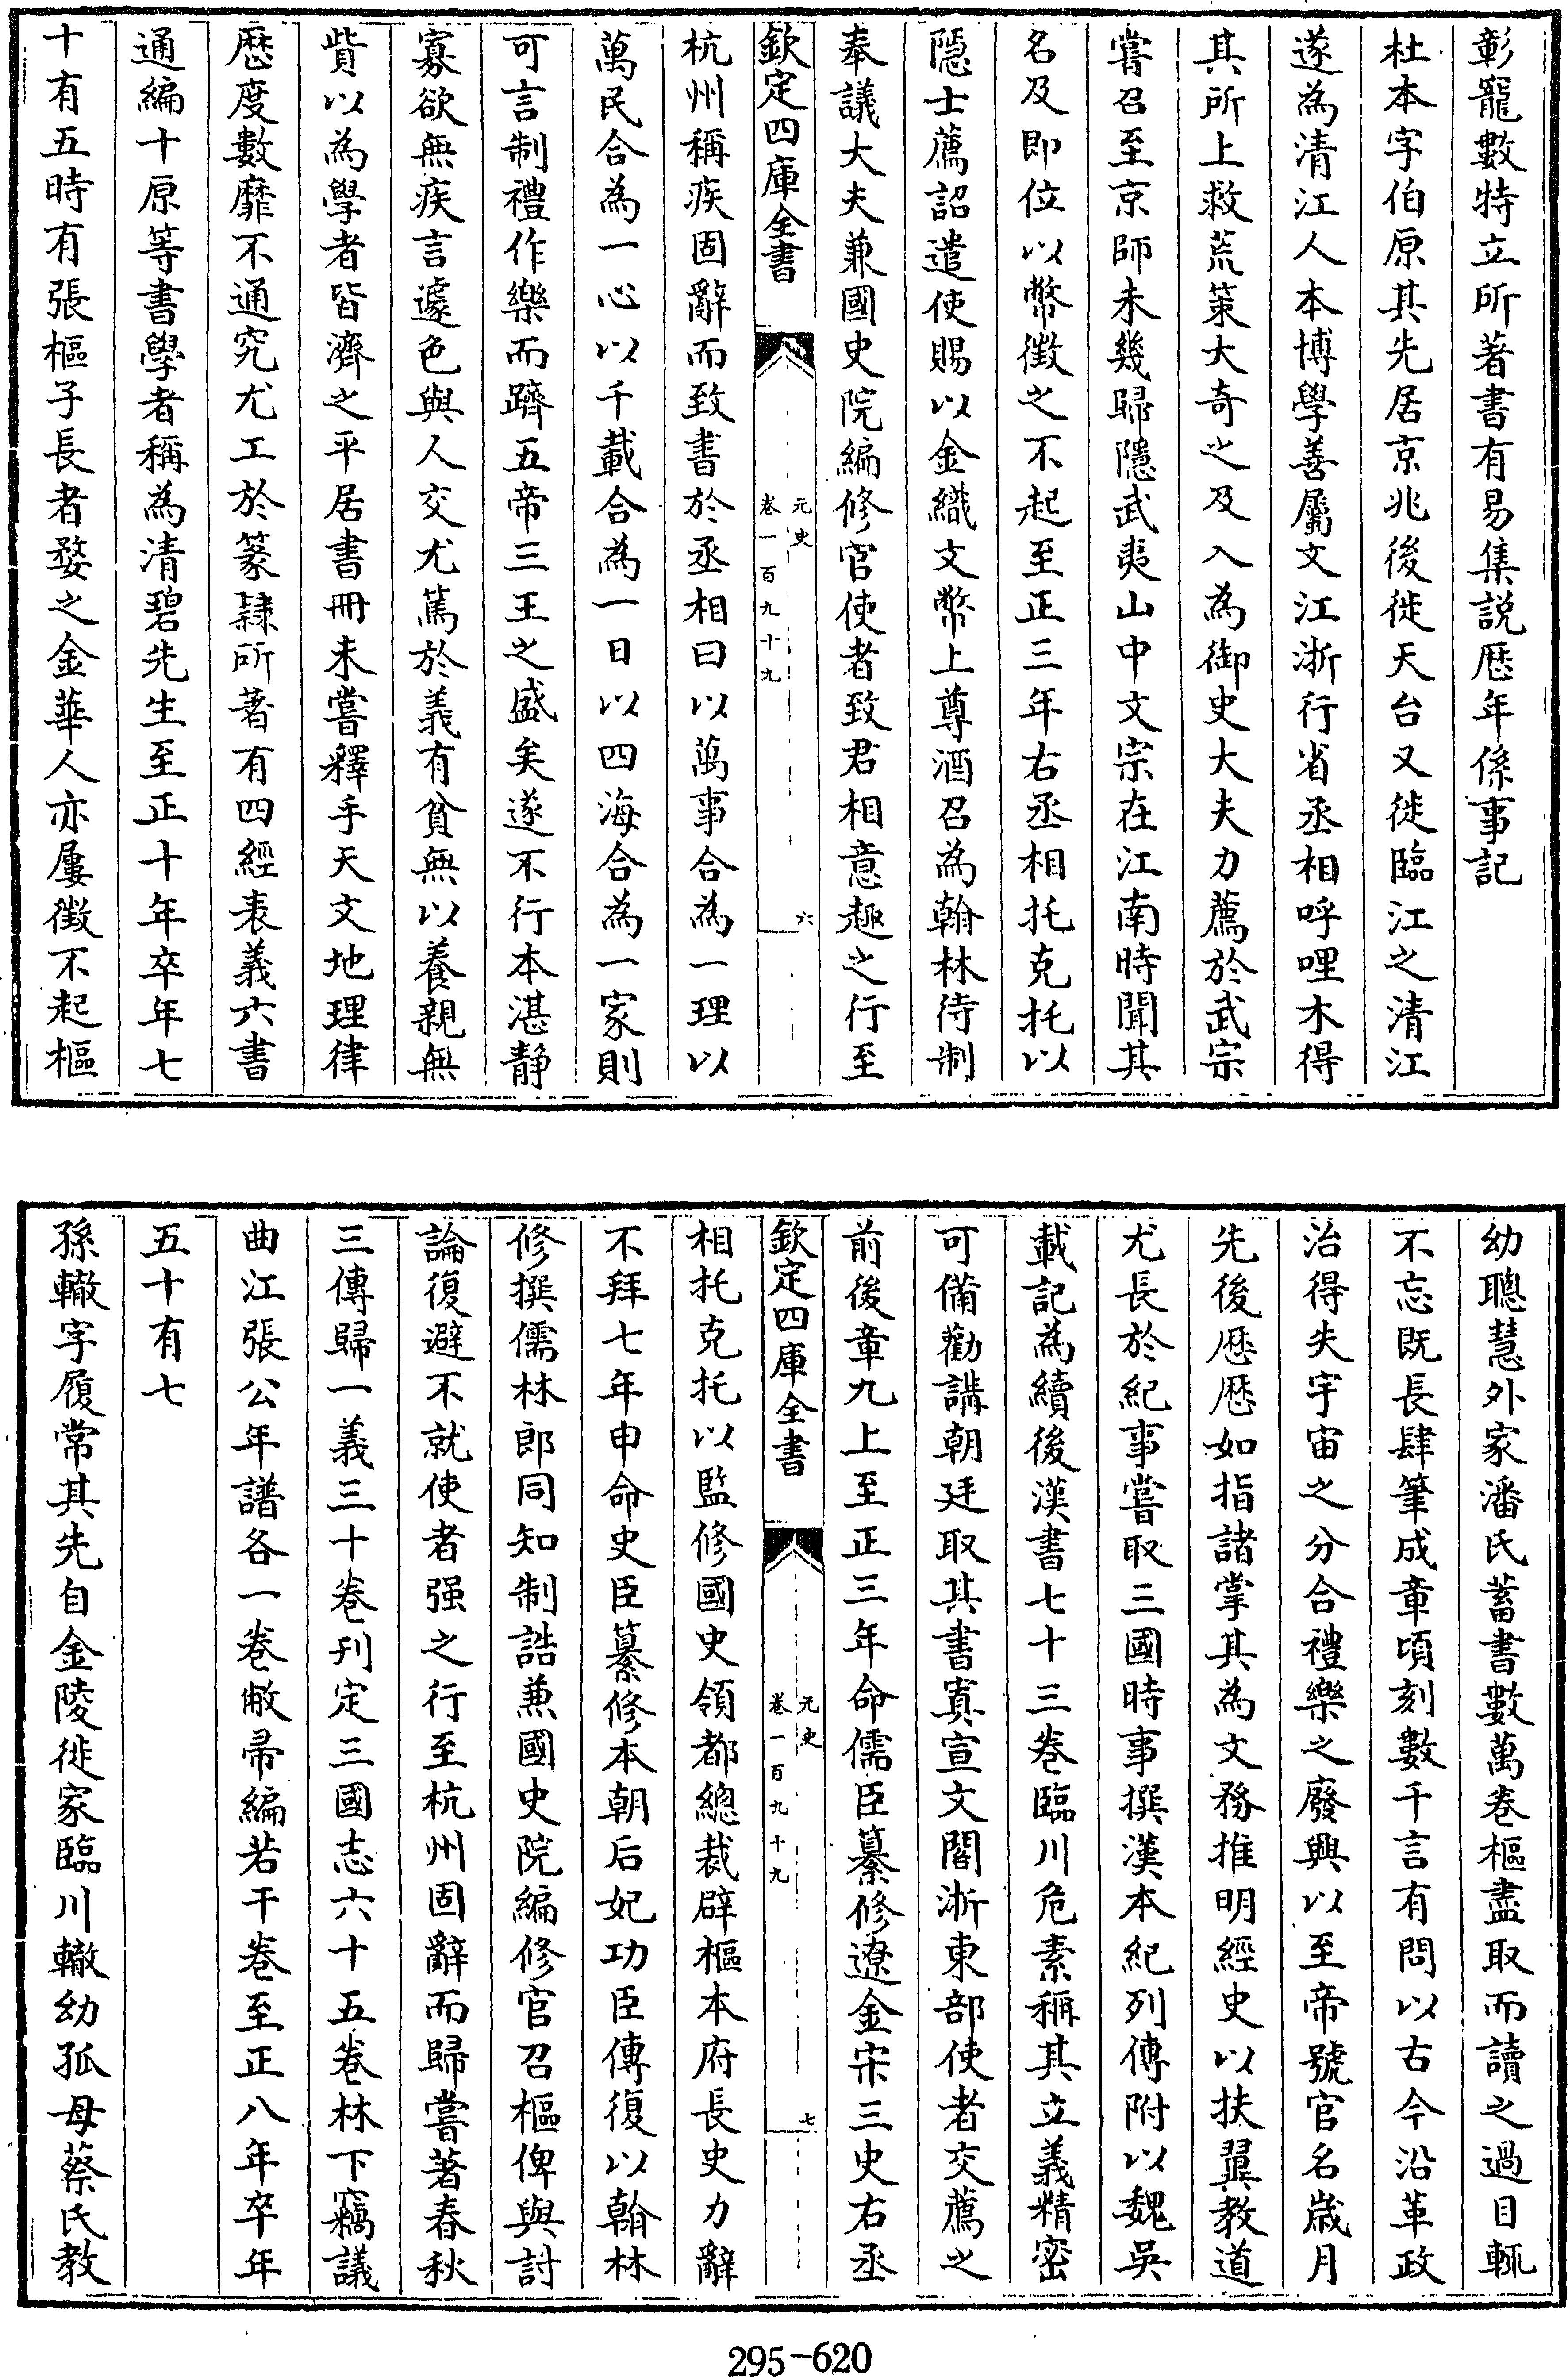 彰寵數特立所著書有易集説厯年係事記
杜本字伯原其先居京兆後徙天台又徙臨江之清江
遂為清江人本博學善屬文江浙行省丞相呼哩木得
其所上救荒策大奇之及入為御史大夫力薦於武宗
嘗召至京師未幾歸隱武夷山中文宗在江南時聞其
名及即位以幣徵之不起至正三年右丞相托克托以
隱士薦詔遣使賜以金織文幣上尊酒召為翰林待制
奉議大夫兼國史院編修官使者致君相意趣之行至
欽定四庫全書
元史
卷一百九十九
六
杭州稱疾固辭而致書於丞相曰以萬事合為一理以
萬民合為一心以千載合為一日以四海合為一家則
可言制禮作樂而躋五帝三王之盛矣遂不行本湛靜
寡欲無疾言遽色與人交尤篤於義有貧無以養親無
貲以為學者皆濟之平居書冊未嘗釋手天文地理律
厯度數靡不通究尤工於篆隸所著有四經表義六書
通編十原等書學者稱為清碧先生至正十年卒年七
十有五時有張樞子長者婺之金華人亦屢徵不起樞
幼聰慧外家潘氏蓄書數萬卷樞盡取而讀之過目輒
不忘既長肆筆成章頃刻數千言有問以古今沿革政
治得失宇宙之分合禮樂之廢興以至帝號官名歲月
先後歴歴如指諸掌其為文務推明經史以扶翼教道
尤長於紀事嘗取三國時事撰漢本紀列傳附以魏吳
載記為續後漢書七十三卷臨川危素稱其立義精密
可備勸講朝廷取其書寘宣文閣浙東部使者交薦之
前後章九上至正三年命儒臣纂修遼金宋三史右丞
欽定四庫全書
元史
卷一百九十九
七
相托克托以監修國史領都總裁辟樞本府長史力辭
不拜七年申命史臣纂修本朝后妃功臣傳復以翰林
修撰儒林郎同知制誥兼國史院編修官召樞俾與討
論復避不就使者强之行至杭州固辭而歸嘗著春秋
三傳歸一義三十卷刊定三國志六十五卷林下竊議
曲江張公年譜各一卷敝帚編若干卷至正八年卒年
五十有七
孫轍字履常其先自金陵徙家臨川轍幼孤母蔡氏教
295-620